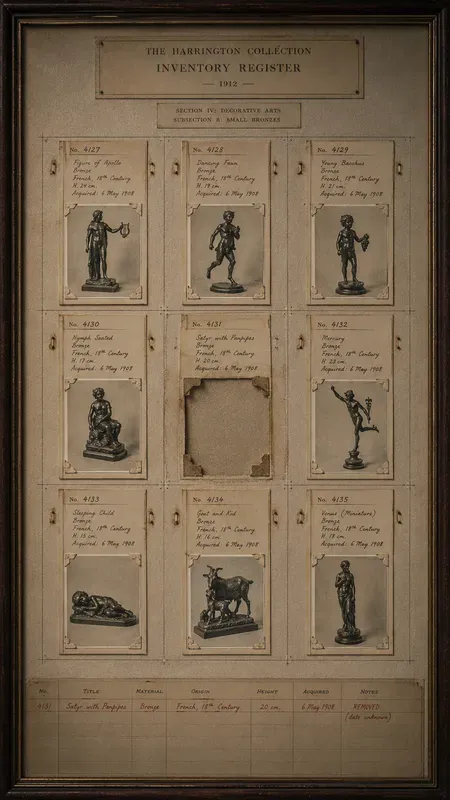 THE HARRINGTON COLLECTION
INVENTORY REGISTER
— 1912 —
SECTION IV: DECORATIVE ARTS
SUBSECTION E: SMALL BRONZES
No. 4127
Figure of Apollo
Bronze
French, 18th Century
H. 24 cm.
Acquired: 6 May 1908
No. 4128
Dancing Faun
Bronze
French, 18th Century
H. 19 cm.
Acquired: 6 May 1908
No. 4129
Young Bacchus
Bronze
French, 18th Century
H. 21 cm.
Acquired: 6 May 1908
No. 4130
Nymph Seated
Bronze
French, 18th Century
H. 17 cm.
Acquired: 6 May 1908
No. 4131
Satyr with Panpipes
Bronze
French, 18th Century
H. 20 cm.
Acquired: 6 May 1908
No. 4132
Mercury
Bronze
French, 18th Century
H. 23 cm.
Acquired: 6 May 1908
No. 4133
Sleeping Child
Bronze
French, 18th Century
H. 15 cm.
Acquired: 6 May 1908
No. 4134
Goat and Kid
Bronze
French, 18th Century
H. 16 cm.
Acquired: 6 May 1908
No. 4135
Venus (Miniature)
Bronze
French, 18th Century
H. 18 cm.
Acquired: 6 May 1908
No. TITLE MATERIAL ORIGIN HEIGHT ACQUIRED NOTES
4131 Satyr with Panpipes Bronze French, 18th Century 20 cm. 6 May 1908 REMOVED
(date unknown)